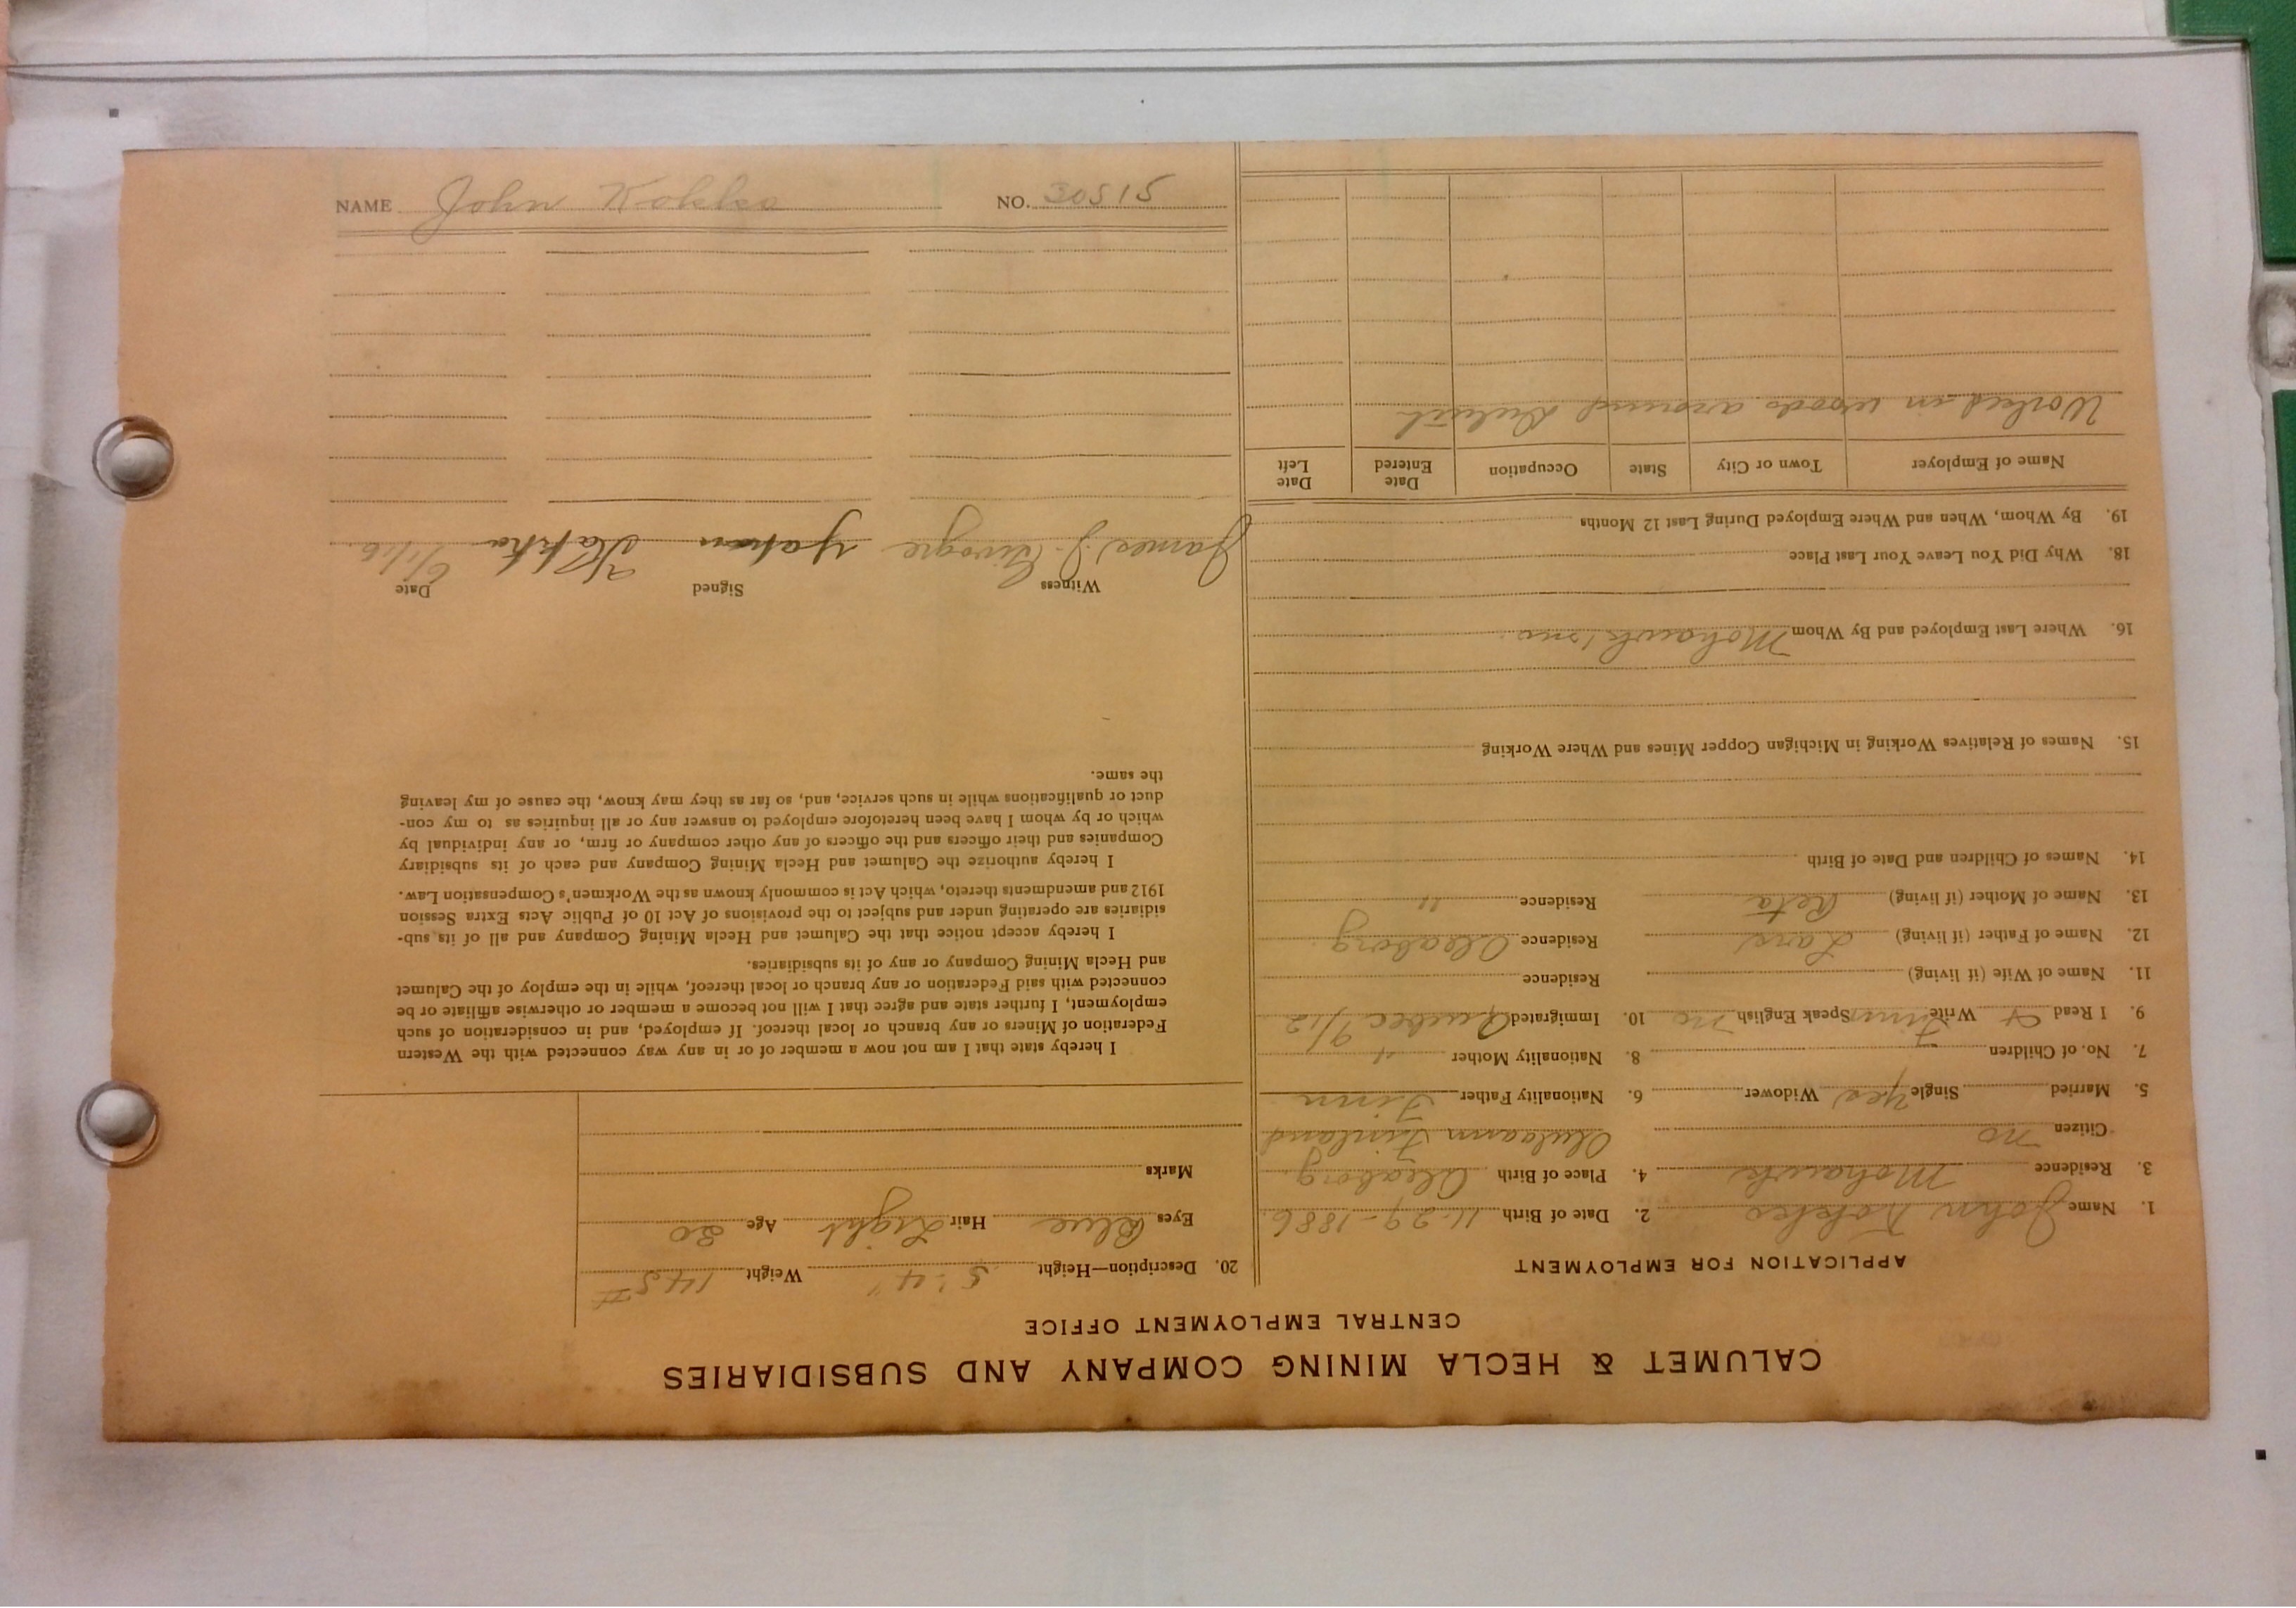 CALUMET & HECLA MINING COMPANY AND SUBSIDIARIES
CENTRAL EMPLOYMENT OFFICE
APPLICATION FOR EMPLOYMENT
1. Name John Kokko 2. Date of Birth 11-29-1886
3. Residence Mohawk 4. Place of Birth Uleaborg.
Citizen no Finland
5. Married Single Yes Widower 6. Nationality Father Finn
7. No. of Children 8. Nationality Mother "
9. I Read & Write Finn Speak English no 10. Immigrated Quebec 9/12
11. Name of Wife (if living) Residence
12. Name of Father (if living) Lars Residence Uleaborg.
13. Name of Mother (if living) Reta Residence "
14. Names of Children and Date of Birth
15. Names of Relatives Working in Michigan Copper Mines and Where Working
16. Where Last Employed and By Whom Mohawk
18. Why Did You Leave Your Last Place
19. By Whom, When and Where Employed During Last 12 Months
Name of Employer Town or City State Occupation Date Entered Date Left
Worked in woods around Duluth
20. Description—Height 5'-4" Weight 145#
Eyes Blue Hair Light Age 30
Marks
I hereby state that I am not now a member of or in any way connected with the Western
Federation of Miners or any branch or local thereof. If employed, and in consideration of such
employment, I further state and agree that I will not become a member or otherwise affiliate or be
connected with said Federation or any branch or local thereof, while in the employ of the Calumet
and Hecla Mining Company or any of its subsidiaries.
I hereby accept notice that the Calumet and Hecla Mining Company and all of its sub-
sidiaries are operating under and subject to the provisions of Act 10 of Public Acts Extra Session
1912 and amendments thereto, which Act is commonly known as the Workmen's Compensation Law.
I hereby authorize the Calumet and Hecla Mining Company and each of its subsidiary
Companies and their officers and the officers of any other company or firm, or any individual by
which or by whom I have been heretofore employed to answer any or all inquiries as to my con-
duct or qualifications while in such service, and, so far as they may know, the cause of my leaving
the same.
Witness Signed Date
James J.
NAME John Kokko NO. 30515